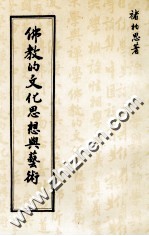 褚柏思著
佛教的文化思想與藝術
www.zhizhen.com